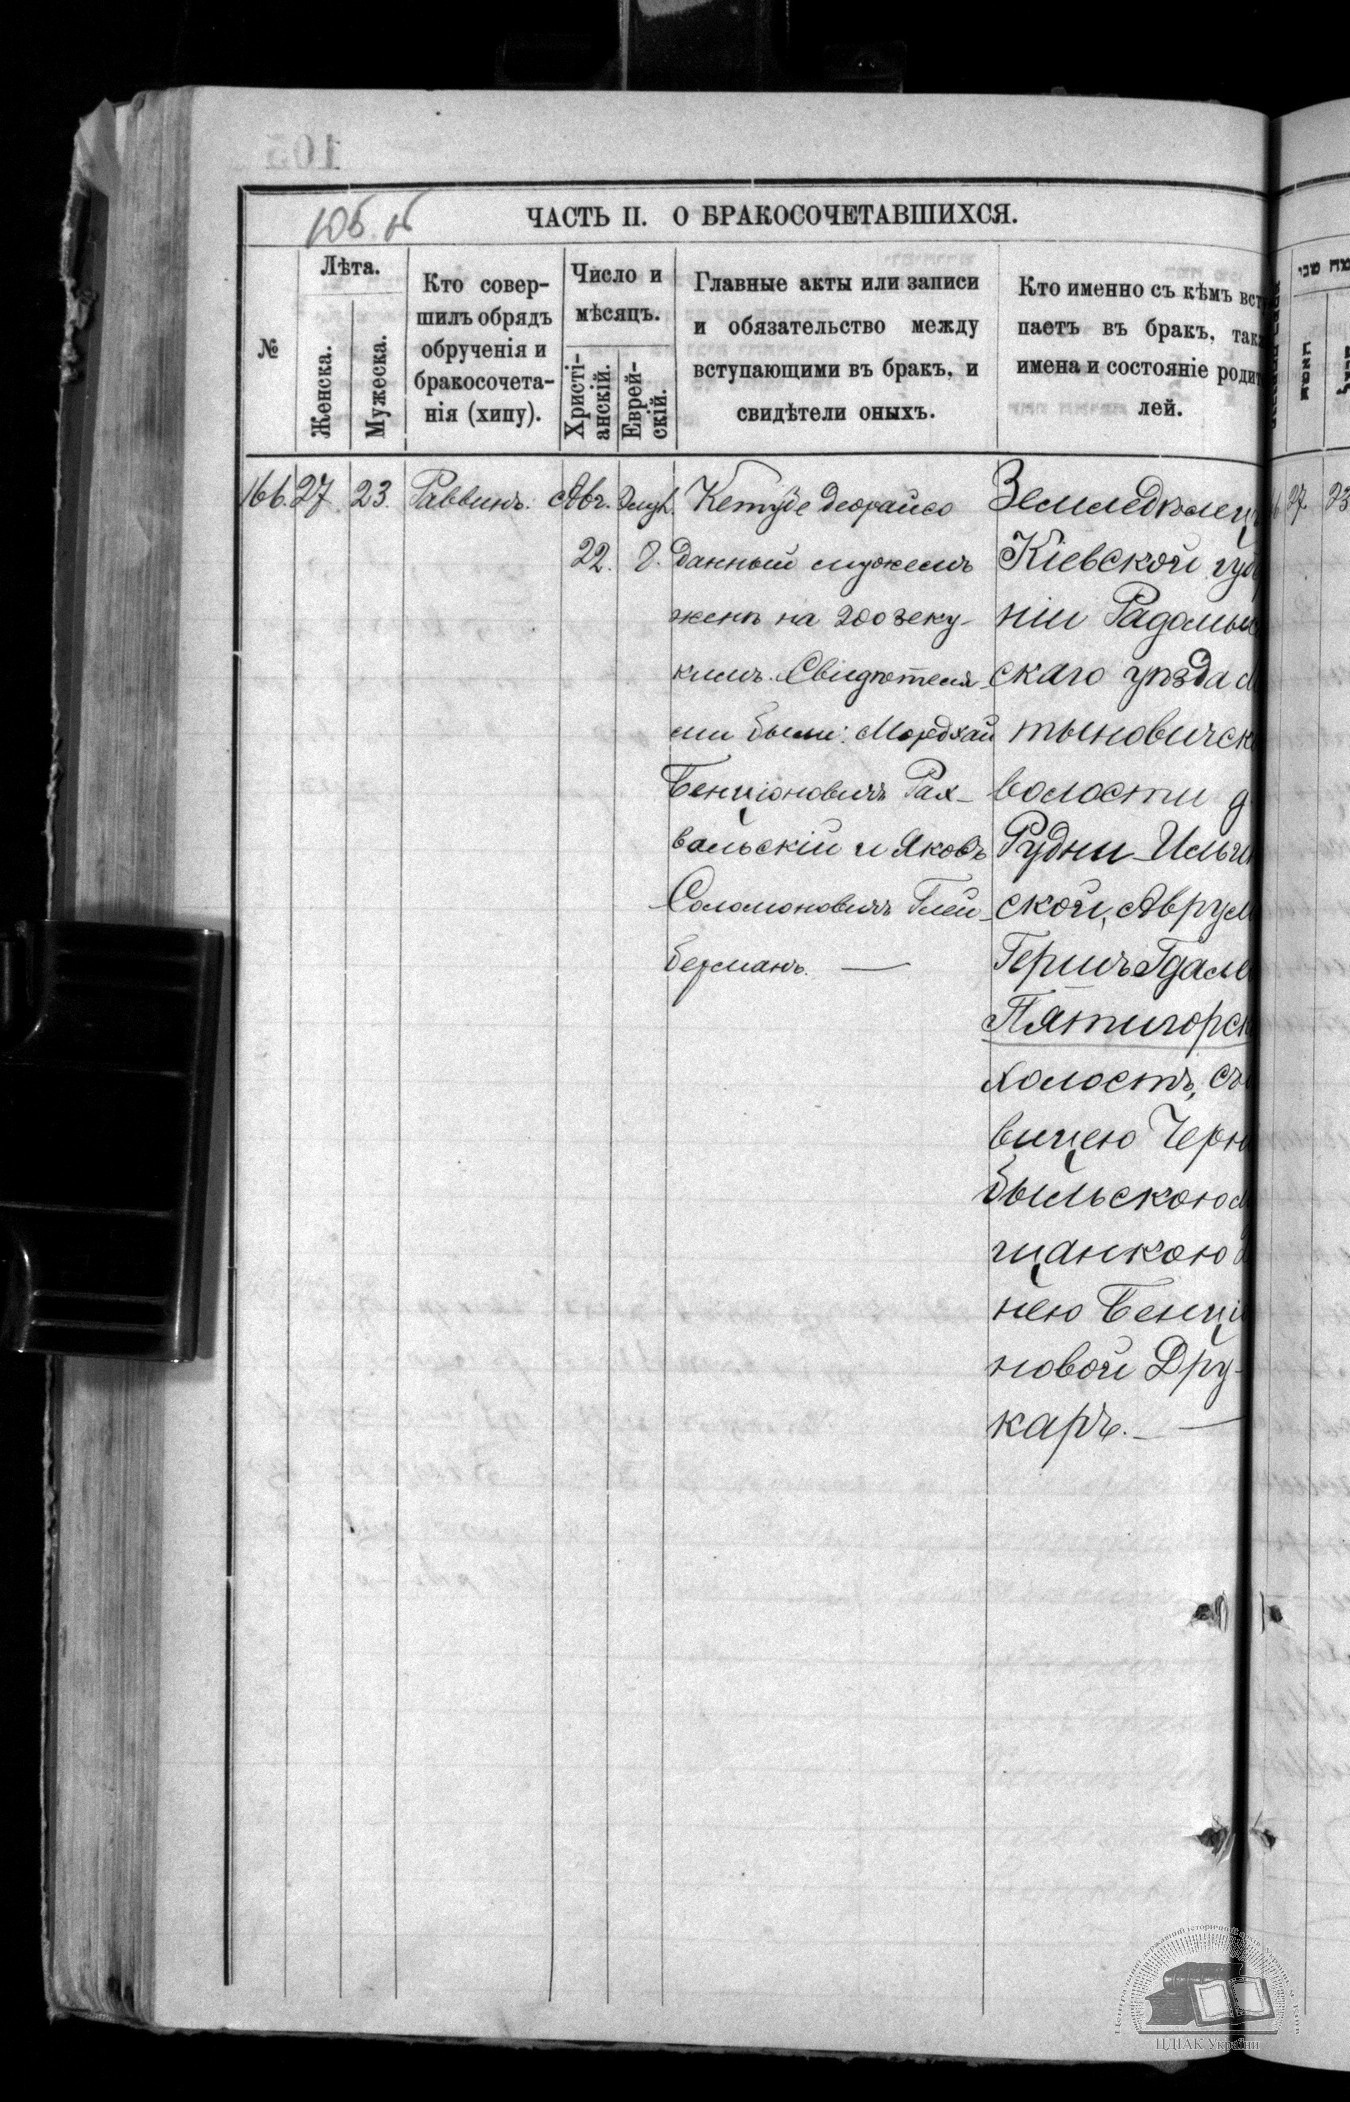 105
105 об
ЧАСТЬ II. О БРАКОСОЧЕТАВШИХСЯ.
№
Лѣта.
Женска.
Мужеска.
Кто совер-
шилъ обрядъ
обрученія и
бракосочета-
нія (хипу).
Число и
мѣсяцъ.
Христі-
анскій.
Еврей-
скій.
Главные акты или записи
и обязательство между
вступающими въ бракъ, и
свидѣтели оныхъ.
Кто именно съ кѣмъ вст
паетъ въ бракъ, так
имена и состояніе родит
лей.
166. 27. 23. Раввинъ. Авг. Элул.
22. 8.
Кетубе деорайсо
данный мужемъ
женѣ на 200 зеку-
кимъ. Свидѣтеля-
ми были: Мордхай
Бенціоновичъ Рах-
вальскій и Яковъ
Соломоновичъ Глей-
берманъ. —
Земледѣлецъ
Кіевской губ
ніи Радомы
скаго уѣзда М
тыновичск
волости д
Рудни-Ильин
ской, Аврум
Гершъ Гдаль
Пятигорск
холостъ, съ
вицею Черно
быльскою м
щанкою
нею Бенціо
новой Дру-
каръ. —
27 23
ЦДІАК України